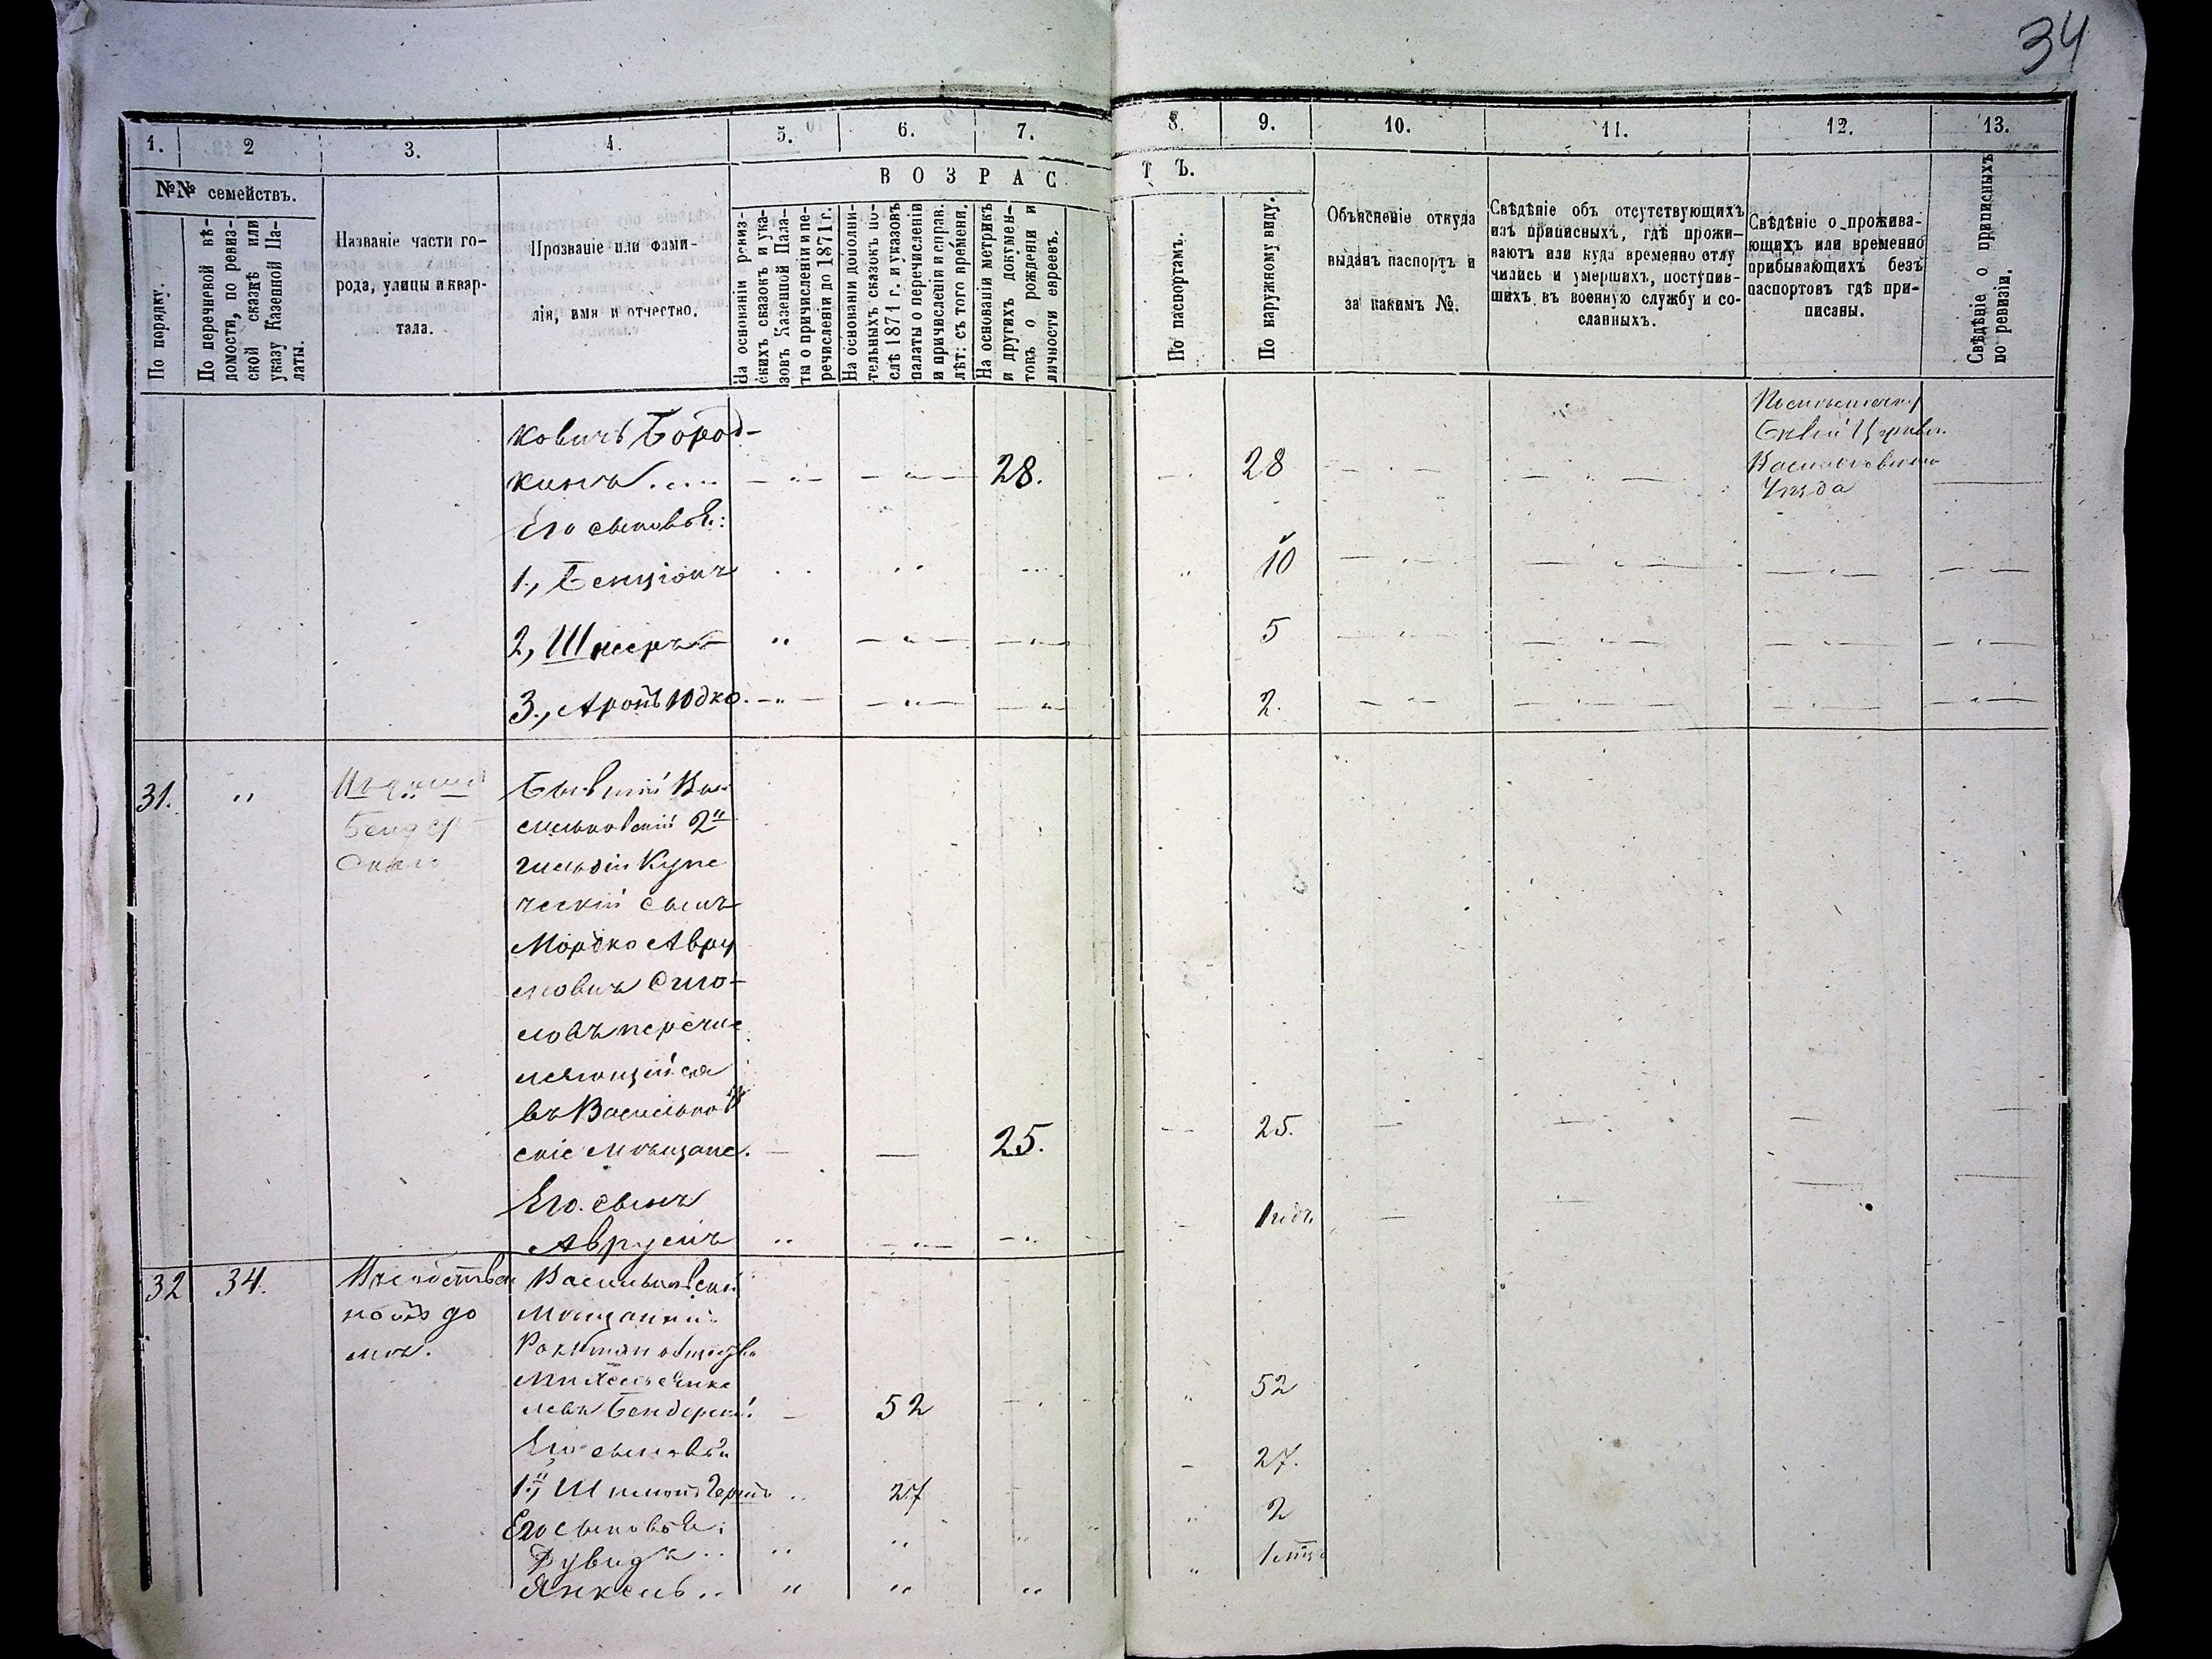 34
1. 2 3. 4. 5. 6. 7. 8. 9. 10. 11. 12. 13.
№№ семействъ.
В О З Р А С Т Ъ.
По порядку.
По перечневой вѣ-
домости, по ревиз-
ской сказкѣ или
указу Казенной Па-
латы.
Названіе части го-
рода, улицы и квар-
тала.
Прозваніе или фами-
лія, имя и отчество.
На основаніи ревиз-
скихъ сказокъ и ука-
зовъ Казенной Пала-
ты о причисленіи и пе-
речисленіи до 1871 г.
На основаніи дополни-
тельныхъ сказокъ по-
слѣ 1871 г. и указовъ
палаты о перечисленіи
и причисленіи и справ.
лѣт: съ того времени.
На основаніи метрикъ
и другихъ докумен-
товъ о рожденіи и
личности евреевъ.
По паспортамъ.
По наружному виду.
Объясненіе откуда
выданъ паспортъ и
за какимъ №.
Свѣдѣніе объ отсутствующихъ
изъ приписныхъ, гдѣ прожи-
ваютъ или куда временно отлу
чились и умершихъ, поступив-
шихъ въ военную службу и со-
сланныхъ.
Свѣдѣніе о прожива-
ющихъ или временно
прибывающихъ безъ
паспортовъ гдѣ при-
писаны.
Свѣдѣніе о приписныхъ
по ревизіи.
ковичъ Бород-
кинъ.... 28. 28
Уѣзда
Его сыновья:
1., Бенціонъ 10
2, Шнееръ 5
3., Аронъ Юдко. 2.
31. " Бывшій Ва-
сильковскій 2й
гильдіи Купе
ческій сынъ
Мордко Авру
мовичъ Смо-
ловъ перечис
ляющійся
въ Васильков
скіе мѣщане. 25. 25.
Его сынъ
Аврумъ 1 годъ
32 34. Въ собствен Васильковскій
номъ до мѣщанинъ
мѣ.
левъ Бендерскій. 52 52
Его сыновья
1й, 27 27.
Его сыновья: 2
Дувидъ..
Янкель..